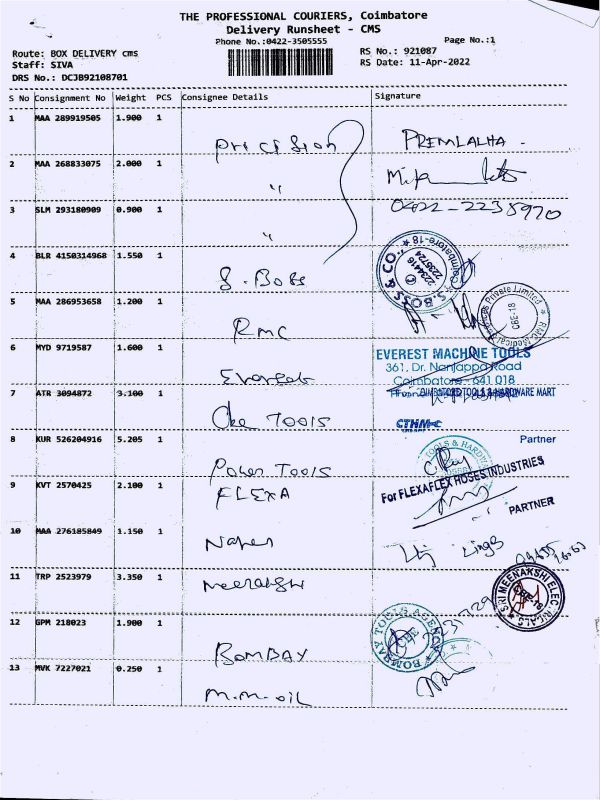 THE PROFESSIONAL COURIERS, Coimbatore
Delivery Runsheet - CMS
Phone No.:0422-3505555
Page No.:1
Route: BOX DELIVERY cms
RS No.: 921087
Staff: SIVA
RS Date: 11-Apr-2022
DRS No.: DCJB92108701
S No Consignment No Weight PCS Consignee Details Signature
1 MAA 289919505 1.900 1
PREMLALHA -
2 MAA 268833075 2.000 1
"
3 SLM 293180909 0.900 1
0422-2235970
"
4 BLR 4150314968 1.550 1
S. BOSS & CO.
Coimbatore-18
2234416
2235724
S. Boss
5 MAA 286953658 1.200 1
RMC Medical Private Limited
CBE-18
RMC
6 MYD 9719587 1.600 1
EVEREST MACHINE TOOLS
361, Dr. Nanjappa Road
Coimbatore - 641 018
7 ATR 3094872 3.100 1
COIMBATORE TOOLS & HARDWARE MART
CTHM
Cbe TOOLS
8 KUR 526204916 5.205 1
Partner
TOOLS & HARDWARE
Power TOOLS
9 KVT 2570425 2.100 1
For FLEXAFLEX HOSES INDUSTRIES
FLEXA
PARTNER
10 MAA 276185849 1.150 1
11 TRP 2523979 3.350 1
SRI MEENAKSHI ELECTRICALS
CBE-18
12 GPM 218023 1.900 1
BOMBAY TOOLS AGENCY
BOMBAY
13 MVK 7227021 0.250 1
M.M. oil